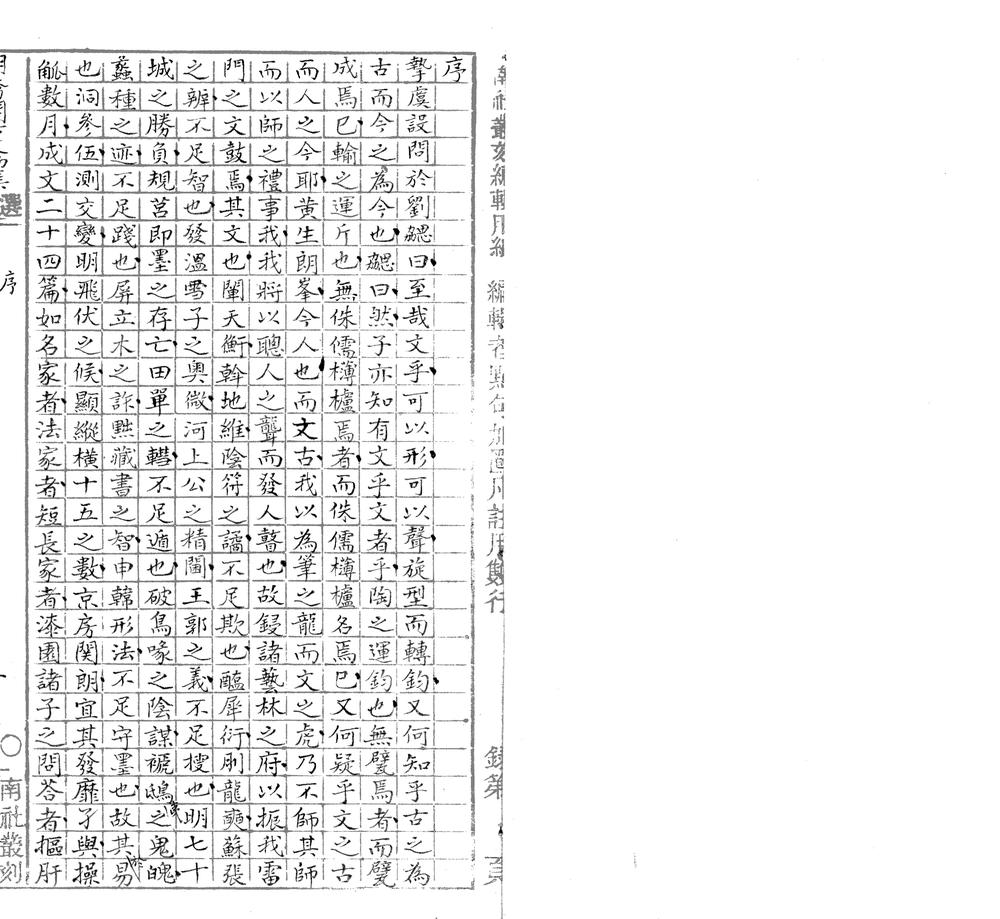 序
摯虞設問於劉勰曰至哉文乎可以形可以聲旋型而轉鈞又何知乎古之為
古而今之為今也勰曰然子亦知有文乎文者乎陶之運鈞也無甓焉者而甓
成焉巳輪之運斤也無侏儒欂櫨焉者而侏儒欂櫨名焉巳又何疑乎文之古
而人之今耶黃生朗峯今人也而文古我以為筆之龍而文之虎乃不師其師
而以師之禮事我我將以聰人之聾而發人瞽也故鋟諸藝林之府以振我雷
門之文鼓焉其文也闡天衡斡地維陰符之譎不足欺也醢犀衍刖龍奭蘇張
之辨不足智也發溫雪子之奧微河上公之精閫王郭之義不足搜也明七十
城之勝負規莒即墨之存亡田單之轊不足遁也破鳥喙之陰謀褫鴟之鬼魄
蠡種之迹不足踐也屏立木之詐黜藏書之智申韓形法不足守墨也故其易
也洞參伍測交變明飛伏之候顯縱橫十五之數京房関朗宜其發靡矛與操
觚數月成文二十四篇如名家者法家者短長家者漆園諸子之問荅者摳肝
選
序
南社叢刻